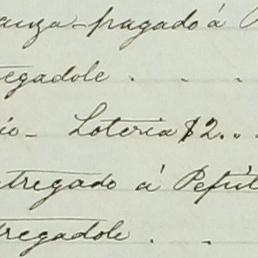 anza - pagado á
tregadole . . .
io - Loteria $2..
ntregado á Pefil
tregadole . .